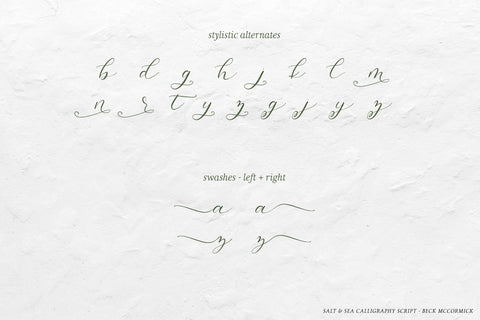 stylistic alternates
b d g h j k l m
n r t y z g j y z
swashes - left + right
a a
z z
SALT & SEA CALLIGRAPHY SCRIPT · BECK MCCORMICK